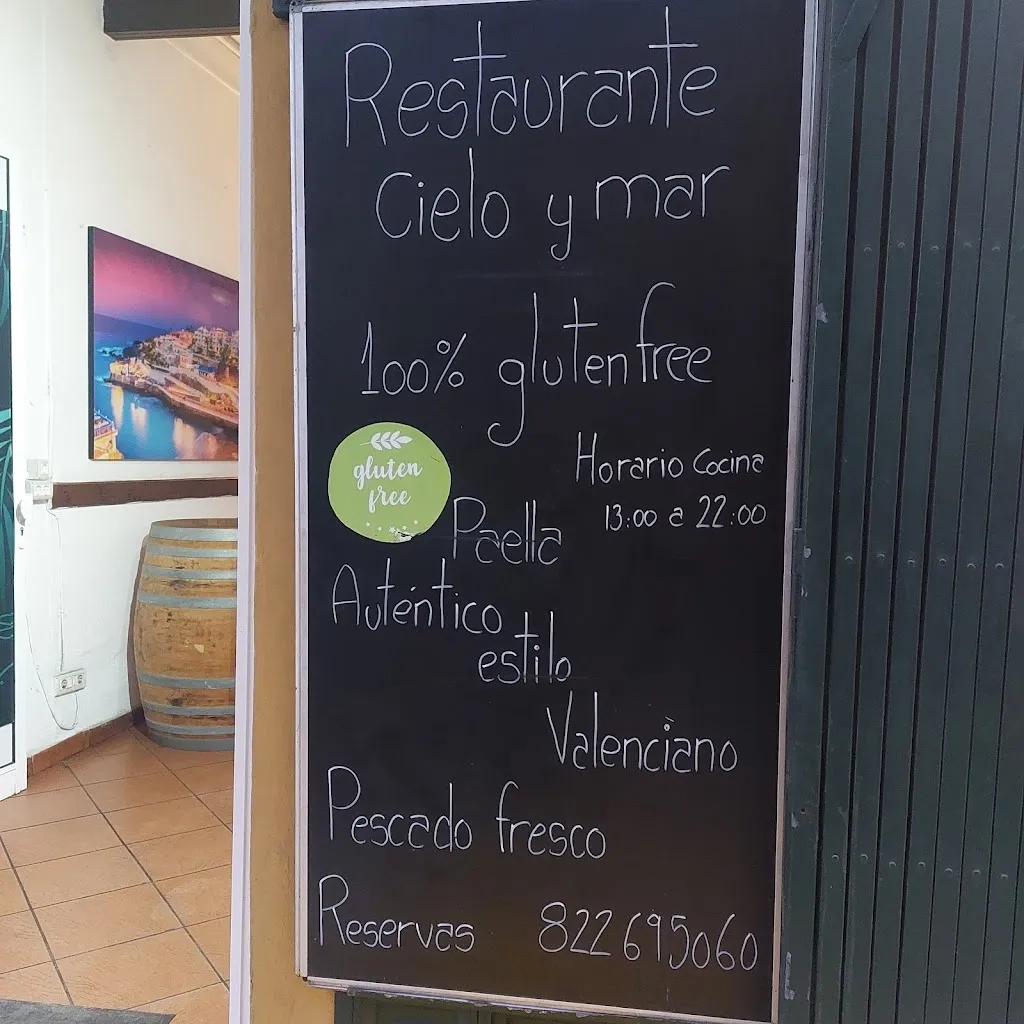 Restaurante
Cielo y mar
100% gluten free
gluten
free
Horario Cocina
13:00 a 22:00
Paella
Auténtico
estilo
Valenciano
Pescado fresco
Reservas 822695060